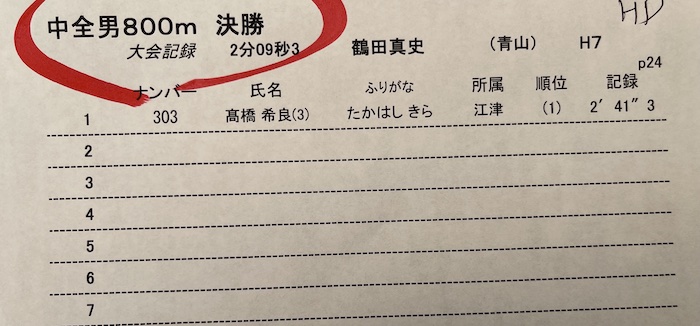 HD
中全男800m 決勝
大会記録 2分09秒3 鶴田真史 (青山) H7
p24
ナンバー 氏名 ふりがな 所属 順位 記録
1 303 髙橋 希良(3) たかはし きら 江津 (1) 2′ 41″ 3
2
3
4
5
6
7